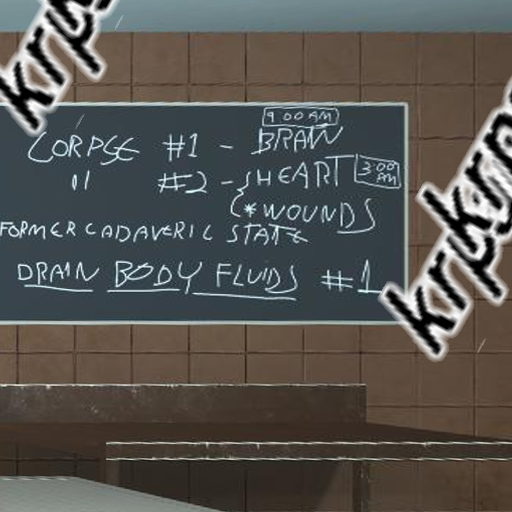 9:00 AM
CORPSE #1 - BRAIN
" #2 - HEART 3:00 AM
(*WOUNDS
FORMER CADAVERIC STATE
DRAIN BODY FLUIDS #1